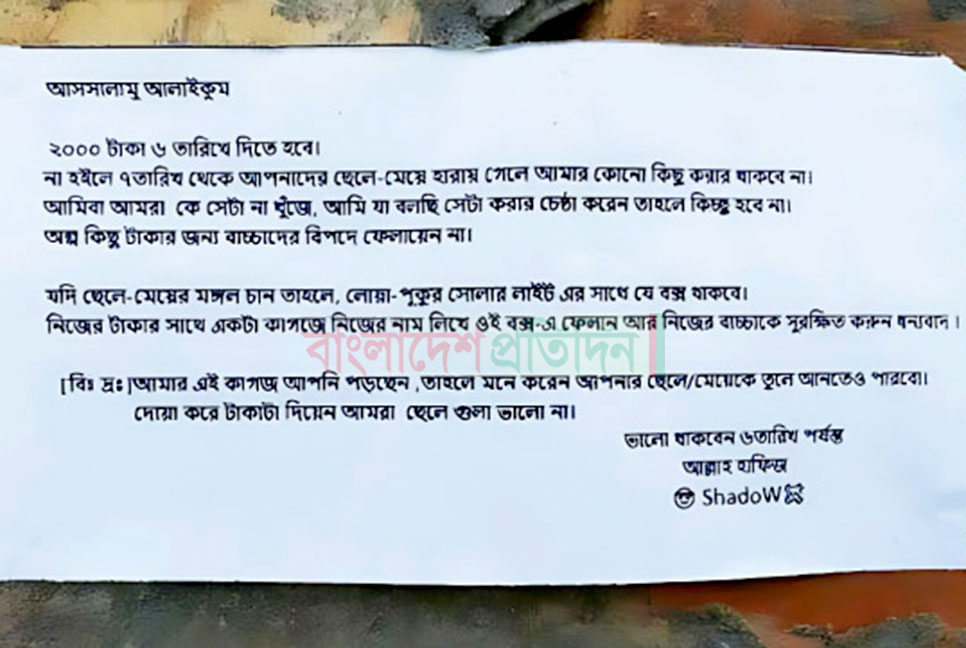 আসসালামু আলাইকুম
২০০০ টাকা ৬ তারিখে দিতে হবে।
না হইলে ৭তারিখ থেকে আপনাদের ছেলে-মেয়ে হারায় গেলে আমার কোনো কিছু করার থাকবে না।
আমিবা আমরা কে সেটা না খুঁজে, আমি যা বলছি সেটা করার চেষ্ঠা করেন তাহলে কিচ্ছু হবে না।
অল্প কিছু টাকার জন্য বাচ্চাদের বিপদে ফেলায়েন না।
যদি ছেলে-মেয়ের মঙ্গল চান তাহলে, লোয়া-পুকুর সোলার লাইট এর সাথে যে বক্স থাকবে।
নিজের টাকার সাথে একটা কাগজে নিজের নাম লিখে ওই বক্স-এ ফেলান আর নিজের বাচ্চাকে সুরক্ষিত করুন ধন্যবাদ ।
বাংলাদেশ প্রতিদিন
[বিঃ দ্রঃ]আমার এই কাগজ আপনি পড়ছেন ,তাহলে মনে করেন আপনার ছেলে/মেয়েকে তুলে আনতেও পারবো।
দোয়া করে টাকাটা দিয়েন আমরা ছেলে গুলা ভালো না।
ভালো থাকবেন ৬তারিখ পর্যন্ত
আল্লাহ হাফিজ
ShadoW